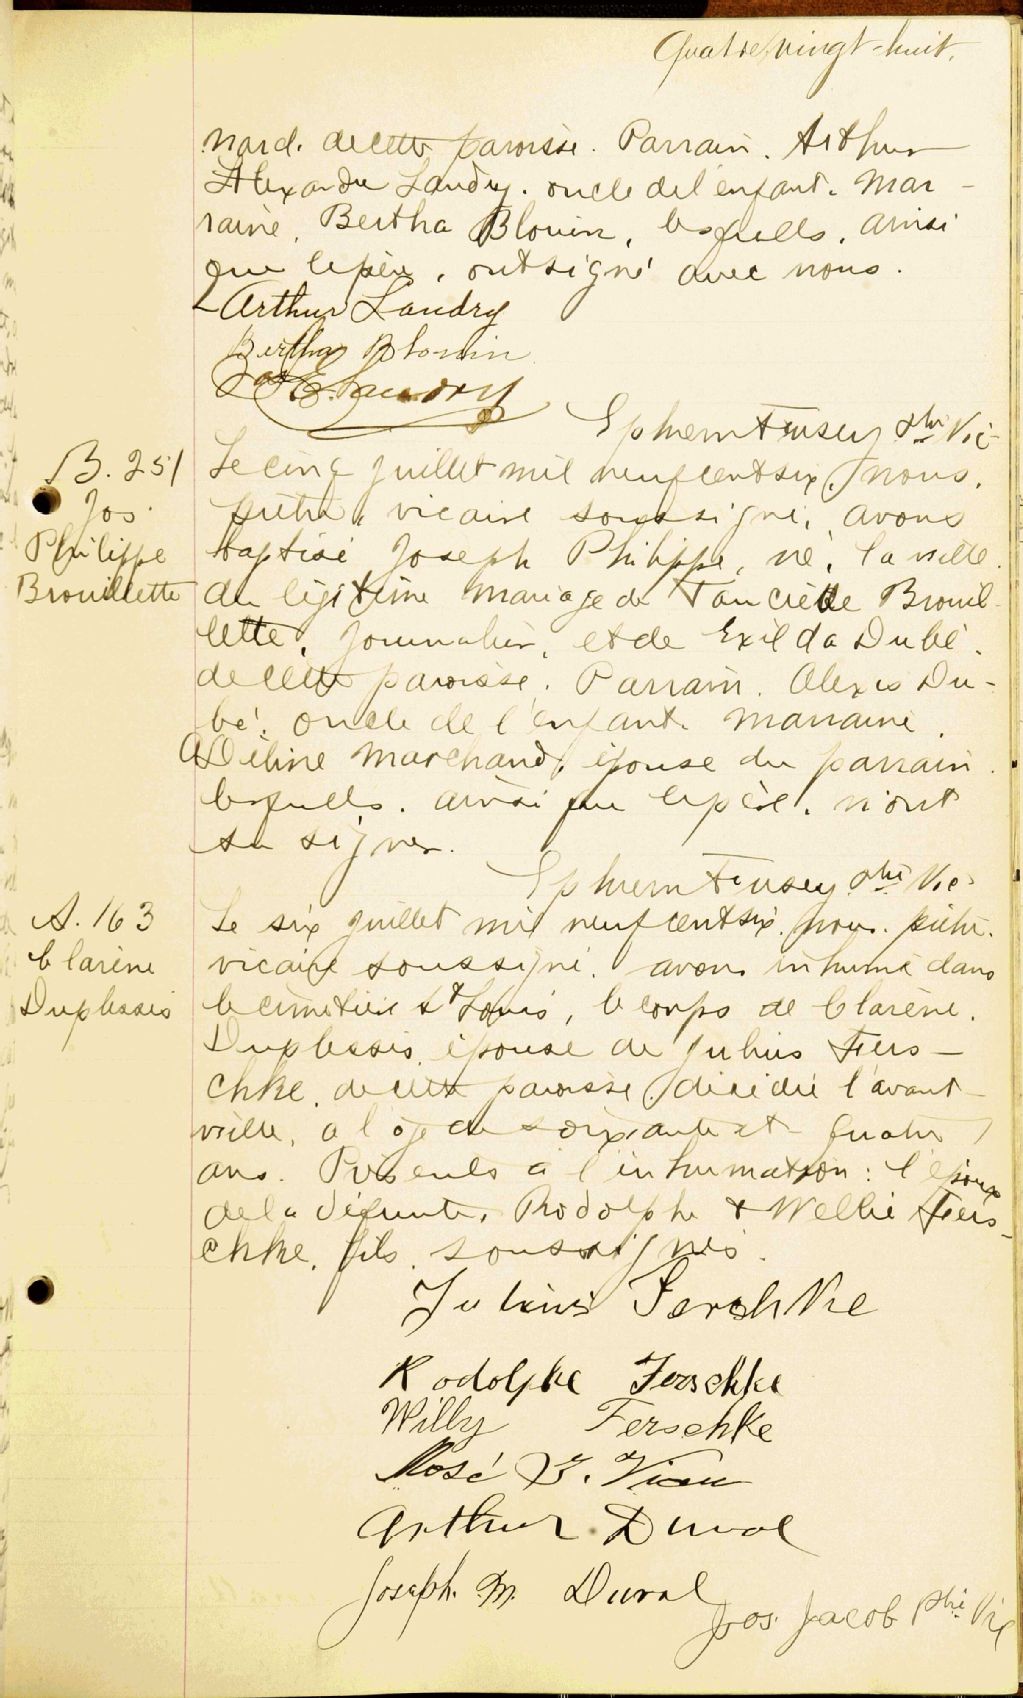 Quatre vingt-huit.
nard. de cette paroisse. Parrain. Arthur
Alexandre Landry. oncle de l'enfant. Mar-
raine, Bertha Blouin, lesquels, ainsi
que le père, ont signé avec nous.
Arthur Landry
Bertha Blouin
Jos E. Landry
Ephrem ptre Vic-
B. 251
Jos.
Philippe
Brouillette
Le cinq juillet mil neuf cent six, nous,
prêtre, vicaire soussigné, avons
baptisé Joseph Philippe, né, la veille
du légitime mariage de Tancrède Brouil-
lette, journalier, et de Exilda Dubé.
de cette paroisse. Parrain. Alexis Du-
bé, oncle de l'enfant. Marraine.
Adéline Marchand, épouse du parrain.
lesquels. ainsi que le père. n'ont
su signer.
Ephrem ptre Vic-
A. 163
Clarène
Duplessis
Le six juillet mil neuf cent six. nous. prêtre.
vicaire soussigné. avons inhumé dans
le cimetière St Louis, le corps de Clarène.
Duplessis, épouse de Julius Fers-
chke. de cette paroisse, décédée l'avant-
veille, à l'âge de soixante et quatre
ans. Présents à l'inhumation: l'époux
de la défunte, Rodolphe & Wellie Fers-
chke, fils, soussignés.
Julius Ferschke
Rodolphe Ferschke
Willy Ferschke
Rosé Viau
Arthur Duval
Joseph. M. Duval
Jos. Jacob ptre Vic